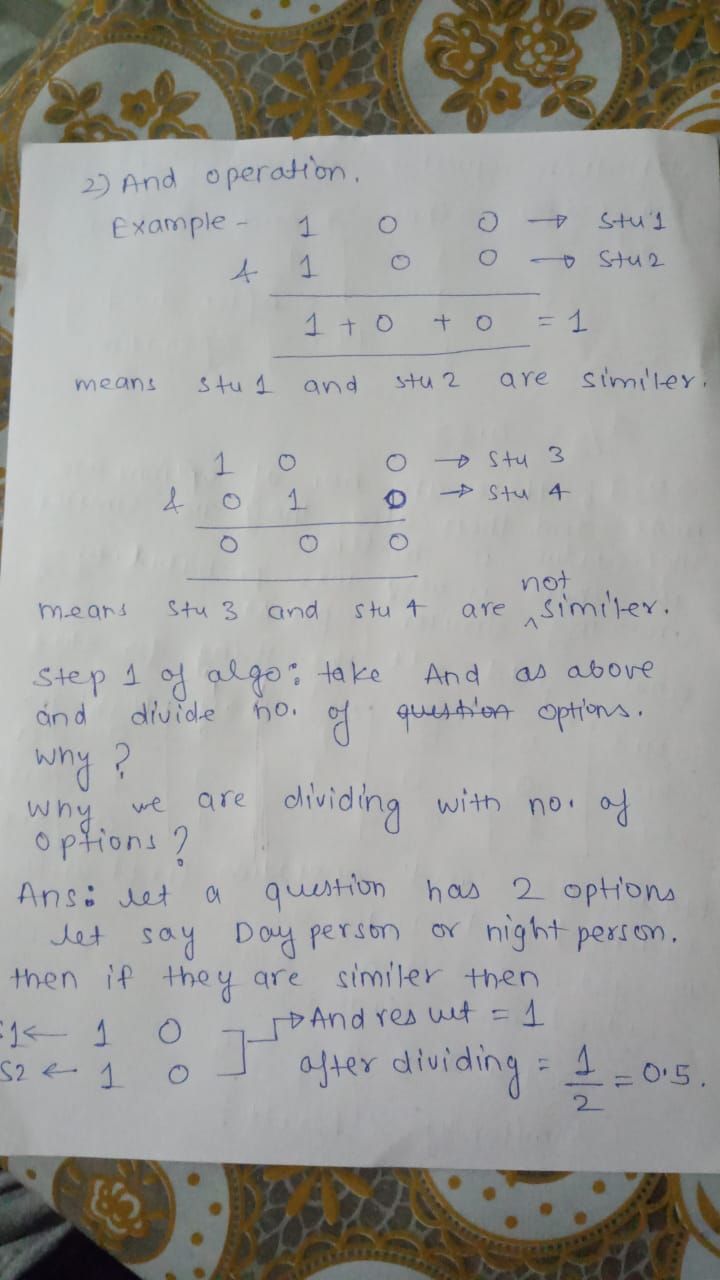 2) And operation.
Example - 1 0 0 → Stu 1
& 1 0 0 → Stu 2
1 + 0 + 0 = 1
means stu 1 and stu 2 are similer.
1 0 0 → Stu 3
& 0 1 0 → Stu 4
0 0 0
not
means Stu 3 and stu 4 are ^ similer.
Step 1 of algo: take And as above
and divide no. of question options.
Why ?
Why we are dividing with no. of
options ?
Ans: let a question has 2 options
let say Day person or night person.
then if they are similer then
S1 ← 1 0 → And result = 1
S2 ← 1 0 after dividing = 1/2 = 0.5.